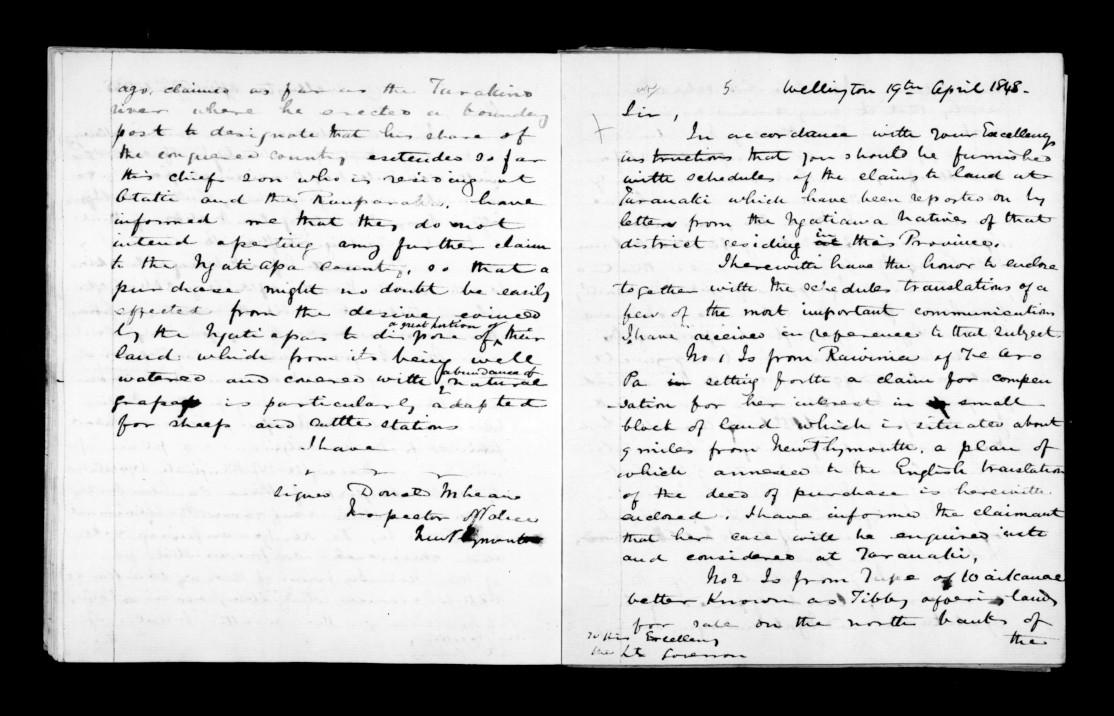 ago, claimed as far as the Turakino
river where he erected a boundary
post to designate that his share of
the conquered country extended so far
this chiefs son who is residing at
Otaki and the Rauparaha, have
informed me that they do not
intend asserting any further claim
to the Ngatiapa country, so that a
purchase might no doubt be easily
effected from the desire evinced
by the Ngatiapas to dispose of a great portion of their
land which from its being well
watered and covered with abundance of natural
grass is particularly adapted
for sheep and cattle stations
I have
Signed Donald McLean
Inspector of Police
New Plymouth
5 Wellington 19th April 1848.
Sir,
In accordance with your Excellencys
instructions that you should be furnished
with schedules of the claims to land at
Taranaki which have been reported on by
letters from the Ngatiawa Natives of that
district residing in this Province.
I herewith have the honor to enclose
together with the schedules translations of a
few of the most important communications
I have received in reference to that subject
No 1 Is from Rawinia of Te Aro
Pa in setting forth a claim for compen
-sation for her interest in a small
block of land which is situated about
9 miles from New Plymouth. a plan of
which annexed to the English translation
of the deed of purchase is herewith
enclosed. I have informed the claimant
that her case will be enquired into
and considered at Taranaki,
No 2 Is from Tupe of Waikanae
better known as Tibby offering lands
for sale on the north banks of
the
To His Excellency
the Lt Governor